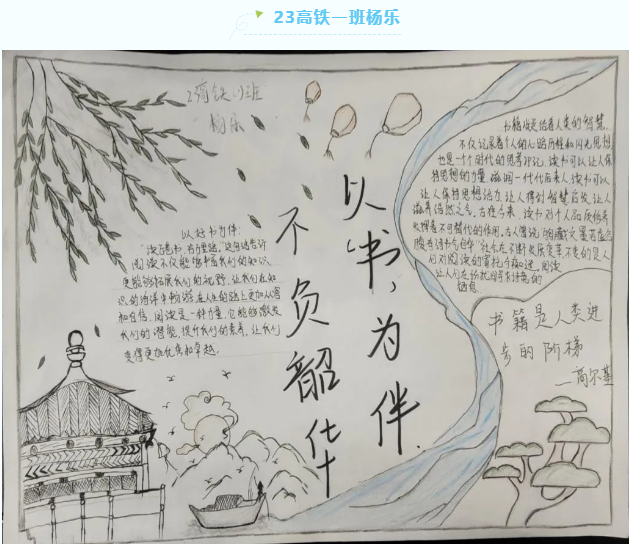 23高铁一班杨乐
23高铁(1)班
杨乐
以"书"为伴
不负韶华
以好书为伴:
"读万卷书,行万里路,"这句话告诉
阅读不仅能够丰富我们的知识,
更能够拓展我们的视野,让我们在知
识的海洋中畅游,在人生的路上更加从容
和自信,阅读是一种力量,它能够激发
我们的潜能,提升我们的素养,让我们
变得更加优秀和卓越。
书籍
着人类的智慧,
不仅记录着个人的心路历程和闪光思想
也是一个时代的思考印记,读书可以让人保
持思想的力量
一代代后来人,读书可以
让人保持思想活力,让人得到智慧启发,让人
滋养浩然之气,古往今来,读书对个人品质培养
不可替代的作用,古人曾说"胸藏文墨
腹有诗书气自华"
不变的是人
们对阅读的
阅读
让人们在
书籍是人类进
步的阶梯
—高尔基